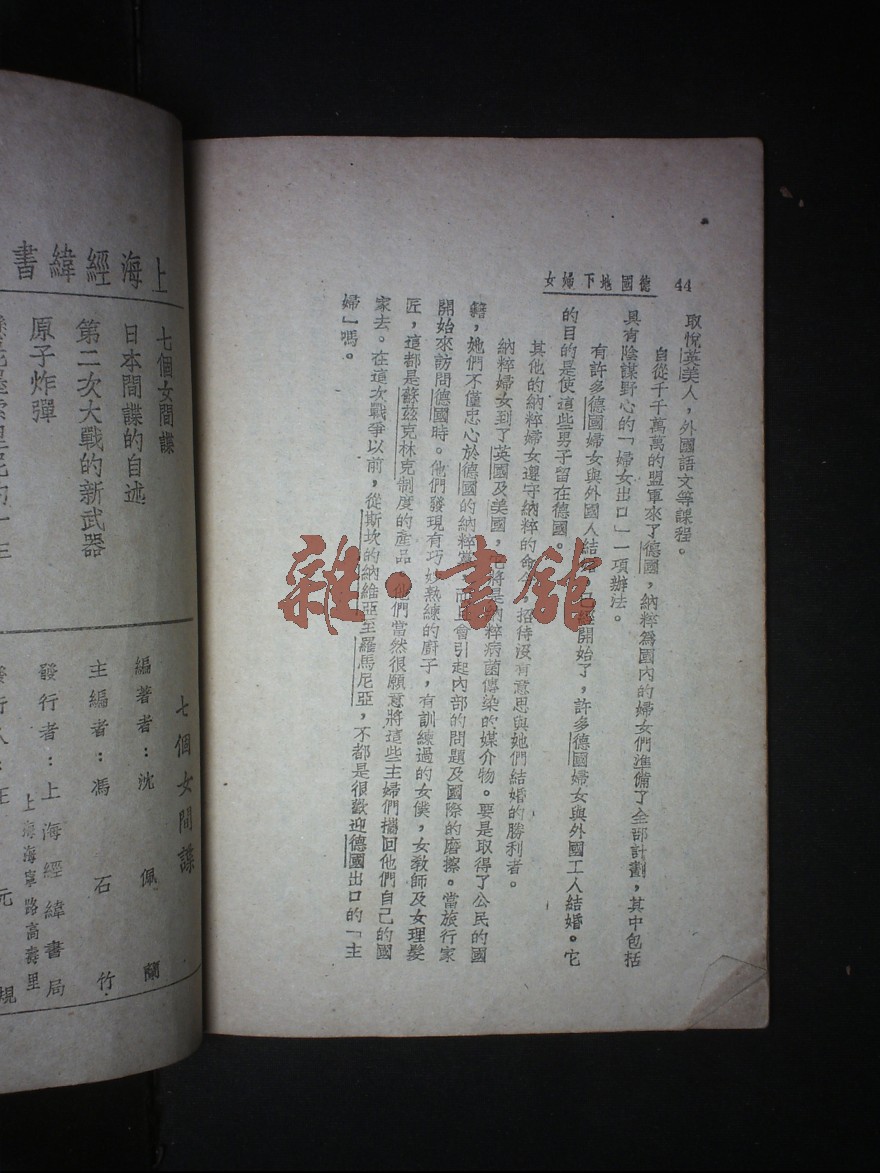 44
德國地下婦女
取悅英美人，外國語文等課程。
自從千千萬萬的盟軍來了德國，納粹爲國內的婦女們準備了全部計劃，其中包括
具有陰謀野心的「婦女出口」一項辦法。
有許多德國婦女與外國人結婚，已經開始了，許多德國婦女與外國工人結婚。它
的目的是使這些男子留在德國。
其他的納粹婦女遵守納粹的命令，招待沒有意思與她們結婚的勝利者。
納粹婦女到了英國及美國，它將是納粹病菌傳染的媒介物。要是取得了公民的國
籍，她們不僅忠心於德國的納粹黨，而且會引起內部的問題及國際的磨擦。當旅行家
開始來訪問德國時。他們發現有巧妙熟練的廚子，有訓練過的女僕，女教師及女理髮
匠，這都是蘇茲克林克制度的產品，他們當然很願意將這些主婦們攜回他們自己的國
家去。在這次戰爭以前，從斯坎的納維亞至羅馬尼亞，不都是很歡迎德國出口的「主
婦」嗎。
雜·書館
上海經緯書
七個女間諜
日本間諜的自述
第二次大戰的新武器
原子炸彈
七個女間諜
編著者：沈佩蘭
主編者：馮石竹
發行者：上海經緯書局
上海海寧路高壽里